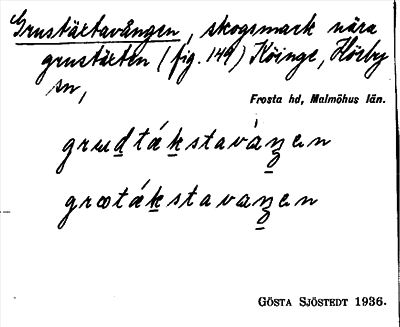 Grustäktavången, skogsmark nära
grustäkten (fig. 149) Köinge, Hörby
sn,
Frosta hd, Malmöhus län.
GÖSTA SJÖSTEDT 1936.